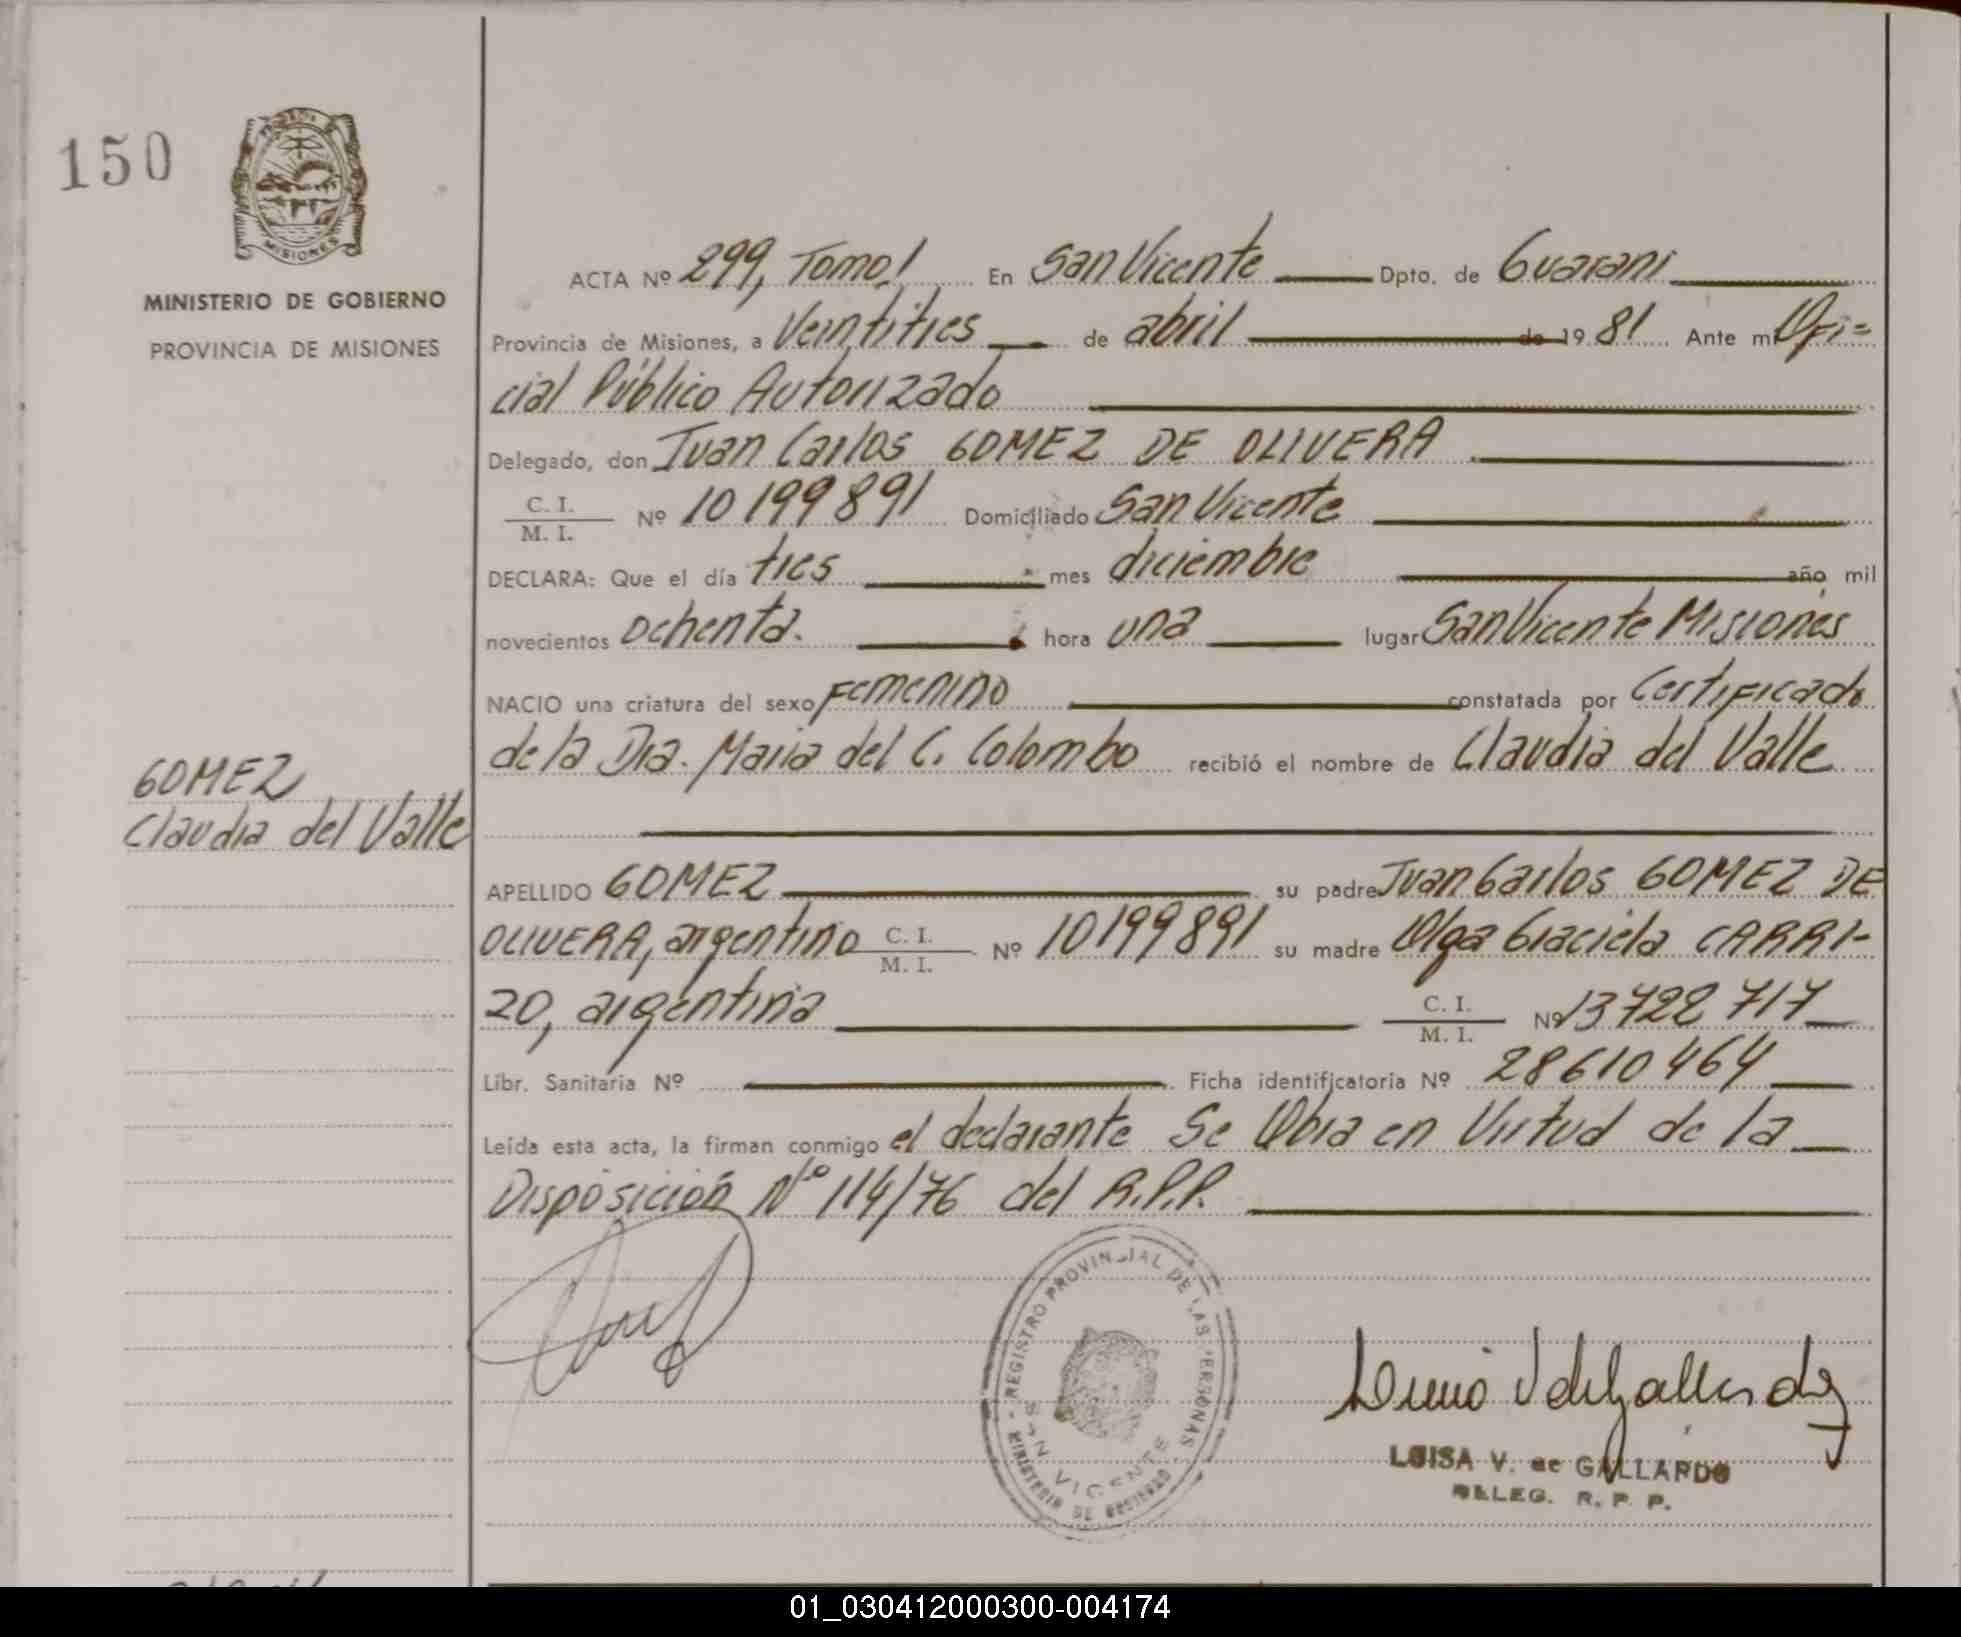 150
MISIONES
MINISTERIO DE GOBIERNO
PROVINCIA DE MISIONES
ACTA Nº 299, Tomo I En San Vicente Dpto. de Guarani
Provincia de Misiones, a Veintitres de abril de 1981 Ante mi Ofi=
cial Público Autorizado
Delegado, don Juan Carlos GOMEZ DE OLIVERA
C. I.
M. I. Nº 10199891 Domiciliado San Vicente
DECLARA: Que el día tres mes diciembre año mil
novecientos ochenta. hora una lugar San Vicente Misiones
NACIO una criatura del sexo Femenino constatada por Certificado
de la Dra. Maria del C. Colombo recibió el nombre de Claudia del Valle
GOMEZ
Claudia del Valle
APELLIDO GOMEZ su padre Juan Carlos GOMEZ DE
OLIVERA, argentino C. I.
M. I. Nº 10199891 su madre Olga Graciela CARRI-
ZO, argentina C. I.
M. I. Nº 13722717
Libr. Sanitaria Nº Ficha identificatoria Nº 28610464
Leída esta acta, la firman conmigo el declarante Se Obra en Virtud de la
Disposición Nº 114/76 del R.P.P.
REGISTRO PROVINCIAL DE LAS PERSONAS
SAN VICENTE
MINISTERIO DE GOBIERNO
LUISA V. de GALLARDO
DELEG. R. P. P.
01_030412000300-004174